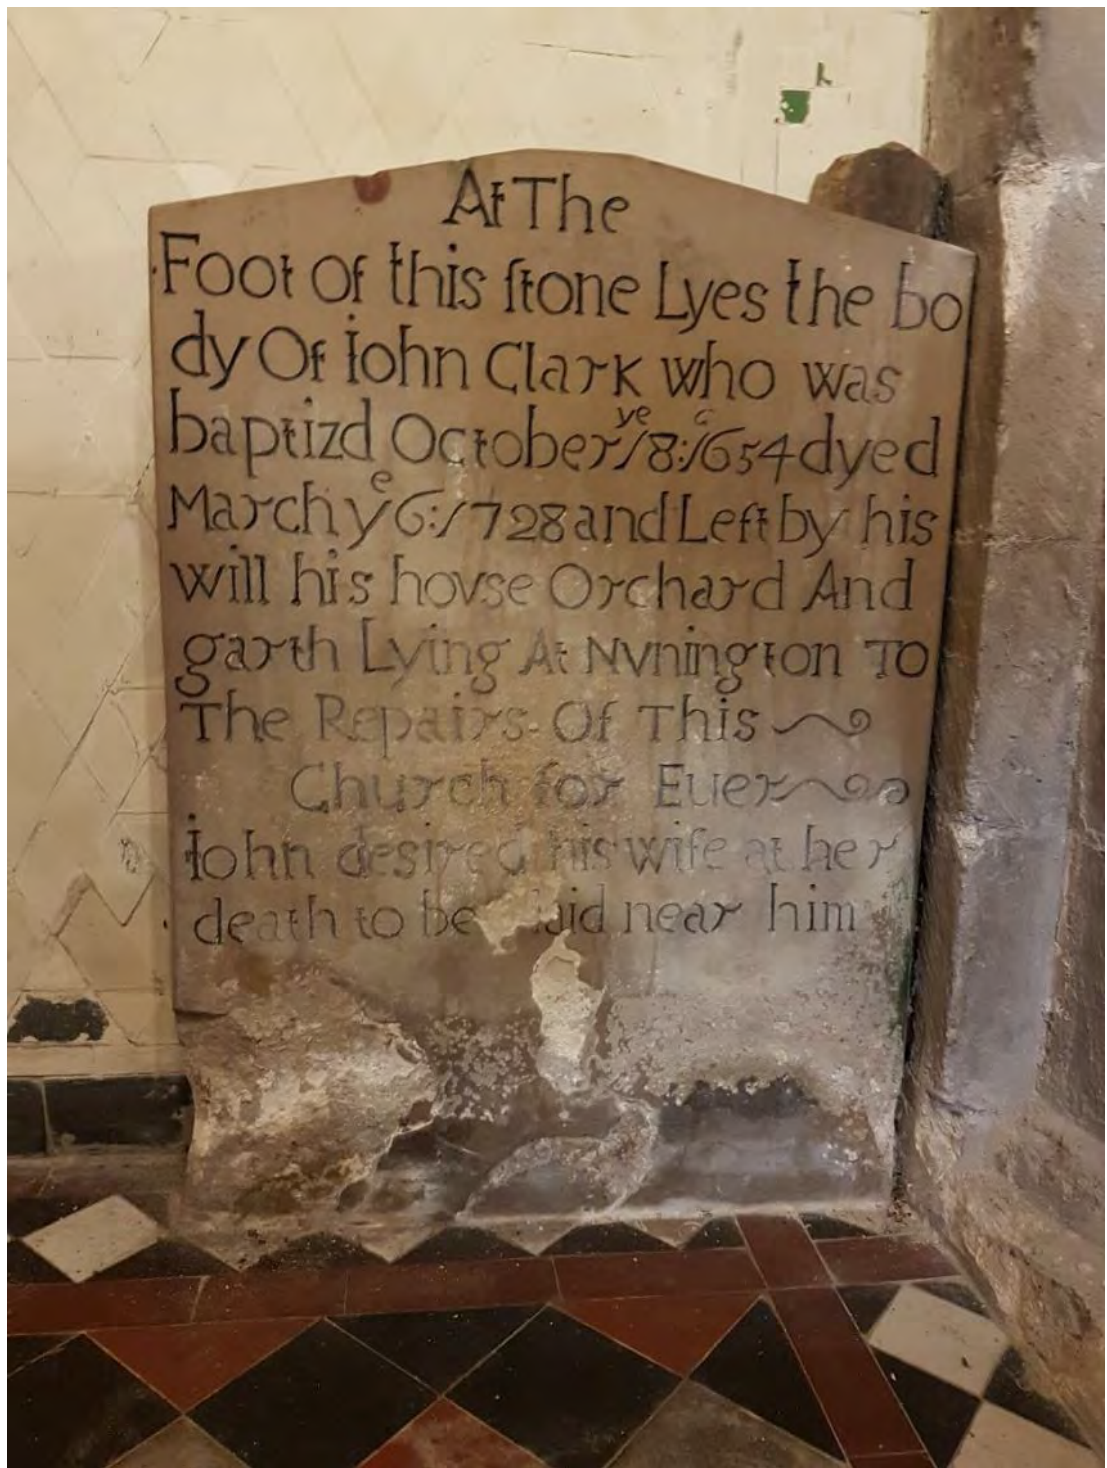 At The
Foot Of this ſtone Lyes the bo
dy Of iohn Clark who was
baptizd October yͤ 18: 1654 dyed
March yͤ 6: 1728 and Left by his
will his hovse Orchard And
garth Lying At Nvnington TO
The Repairs Of This
Church for Euer
iohn desired his wife at her
death to be laid near him